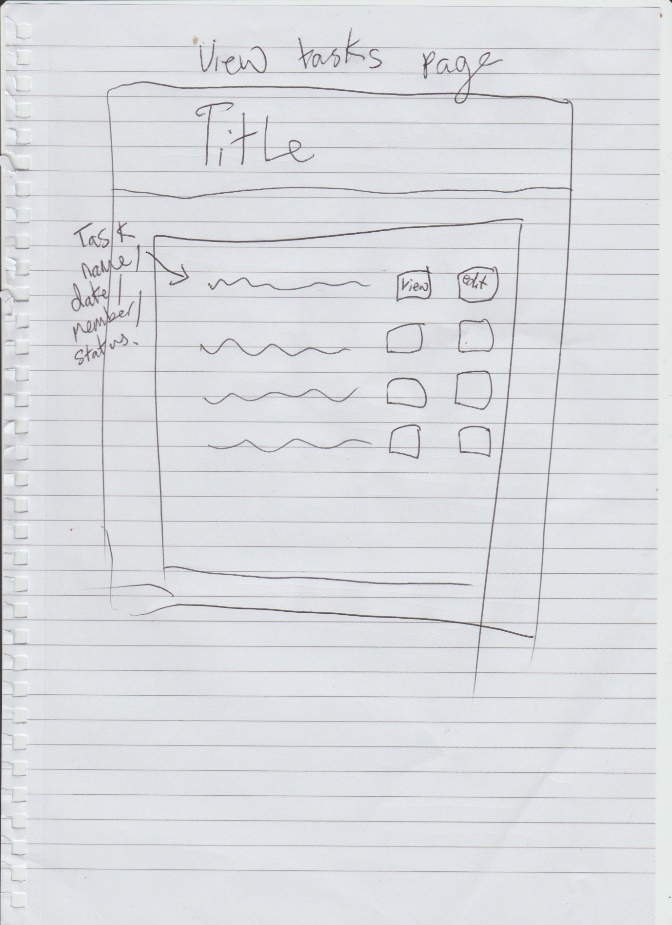 View tasks page
Title
Task
name/
date/
member/
status.
View
edit